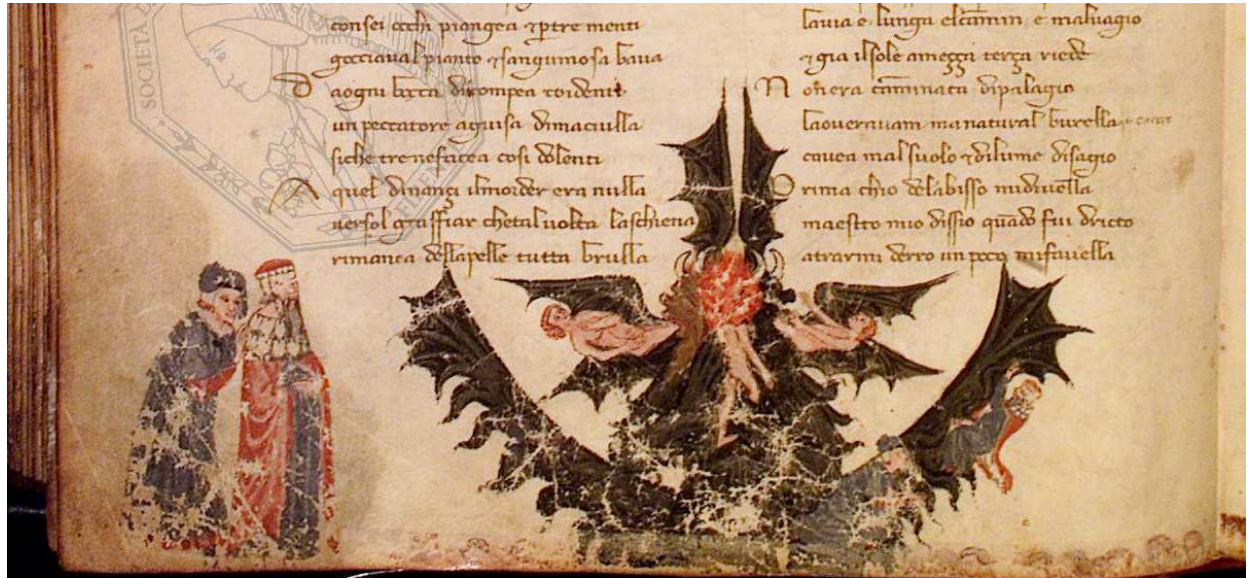 consei occhi piangea & ꝑ tre menti
gocciaval pianto & sanguinosa bava
D aogni bocca dirompea coidenti
un peccatore aguisa dimaciulla
siche tre nefacea cosi dolenti
A quel dinançi ilmorder era nulla
versol graffiar chetal volta laschiena
rimanea dellapelle tutta brulla
lavia e lunga elcamin e malvagio
& gia ilsole ameçça terça riede
N onera caminata dipalagio
laoveravam manatural burella
cavea mal suolo & dilume disagio
P rima chio delabisso midivella
maestro mio dissio quādo fui dricto
atrarmi derro un poco mifavella
SOCIETA